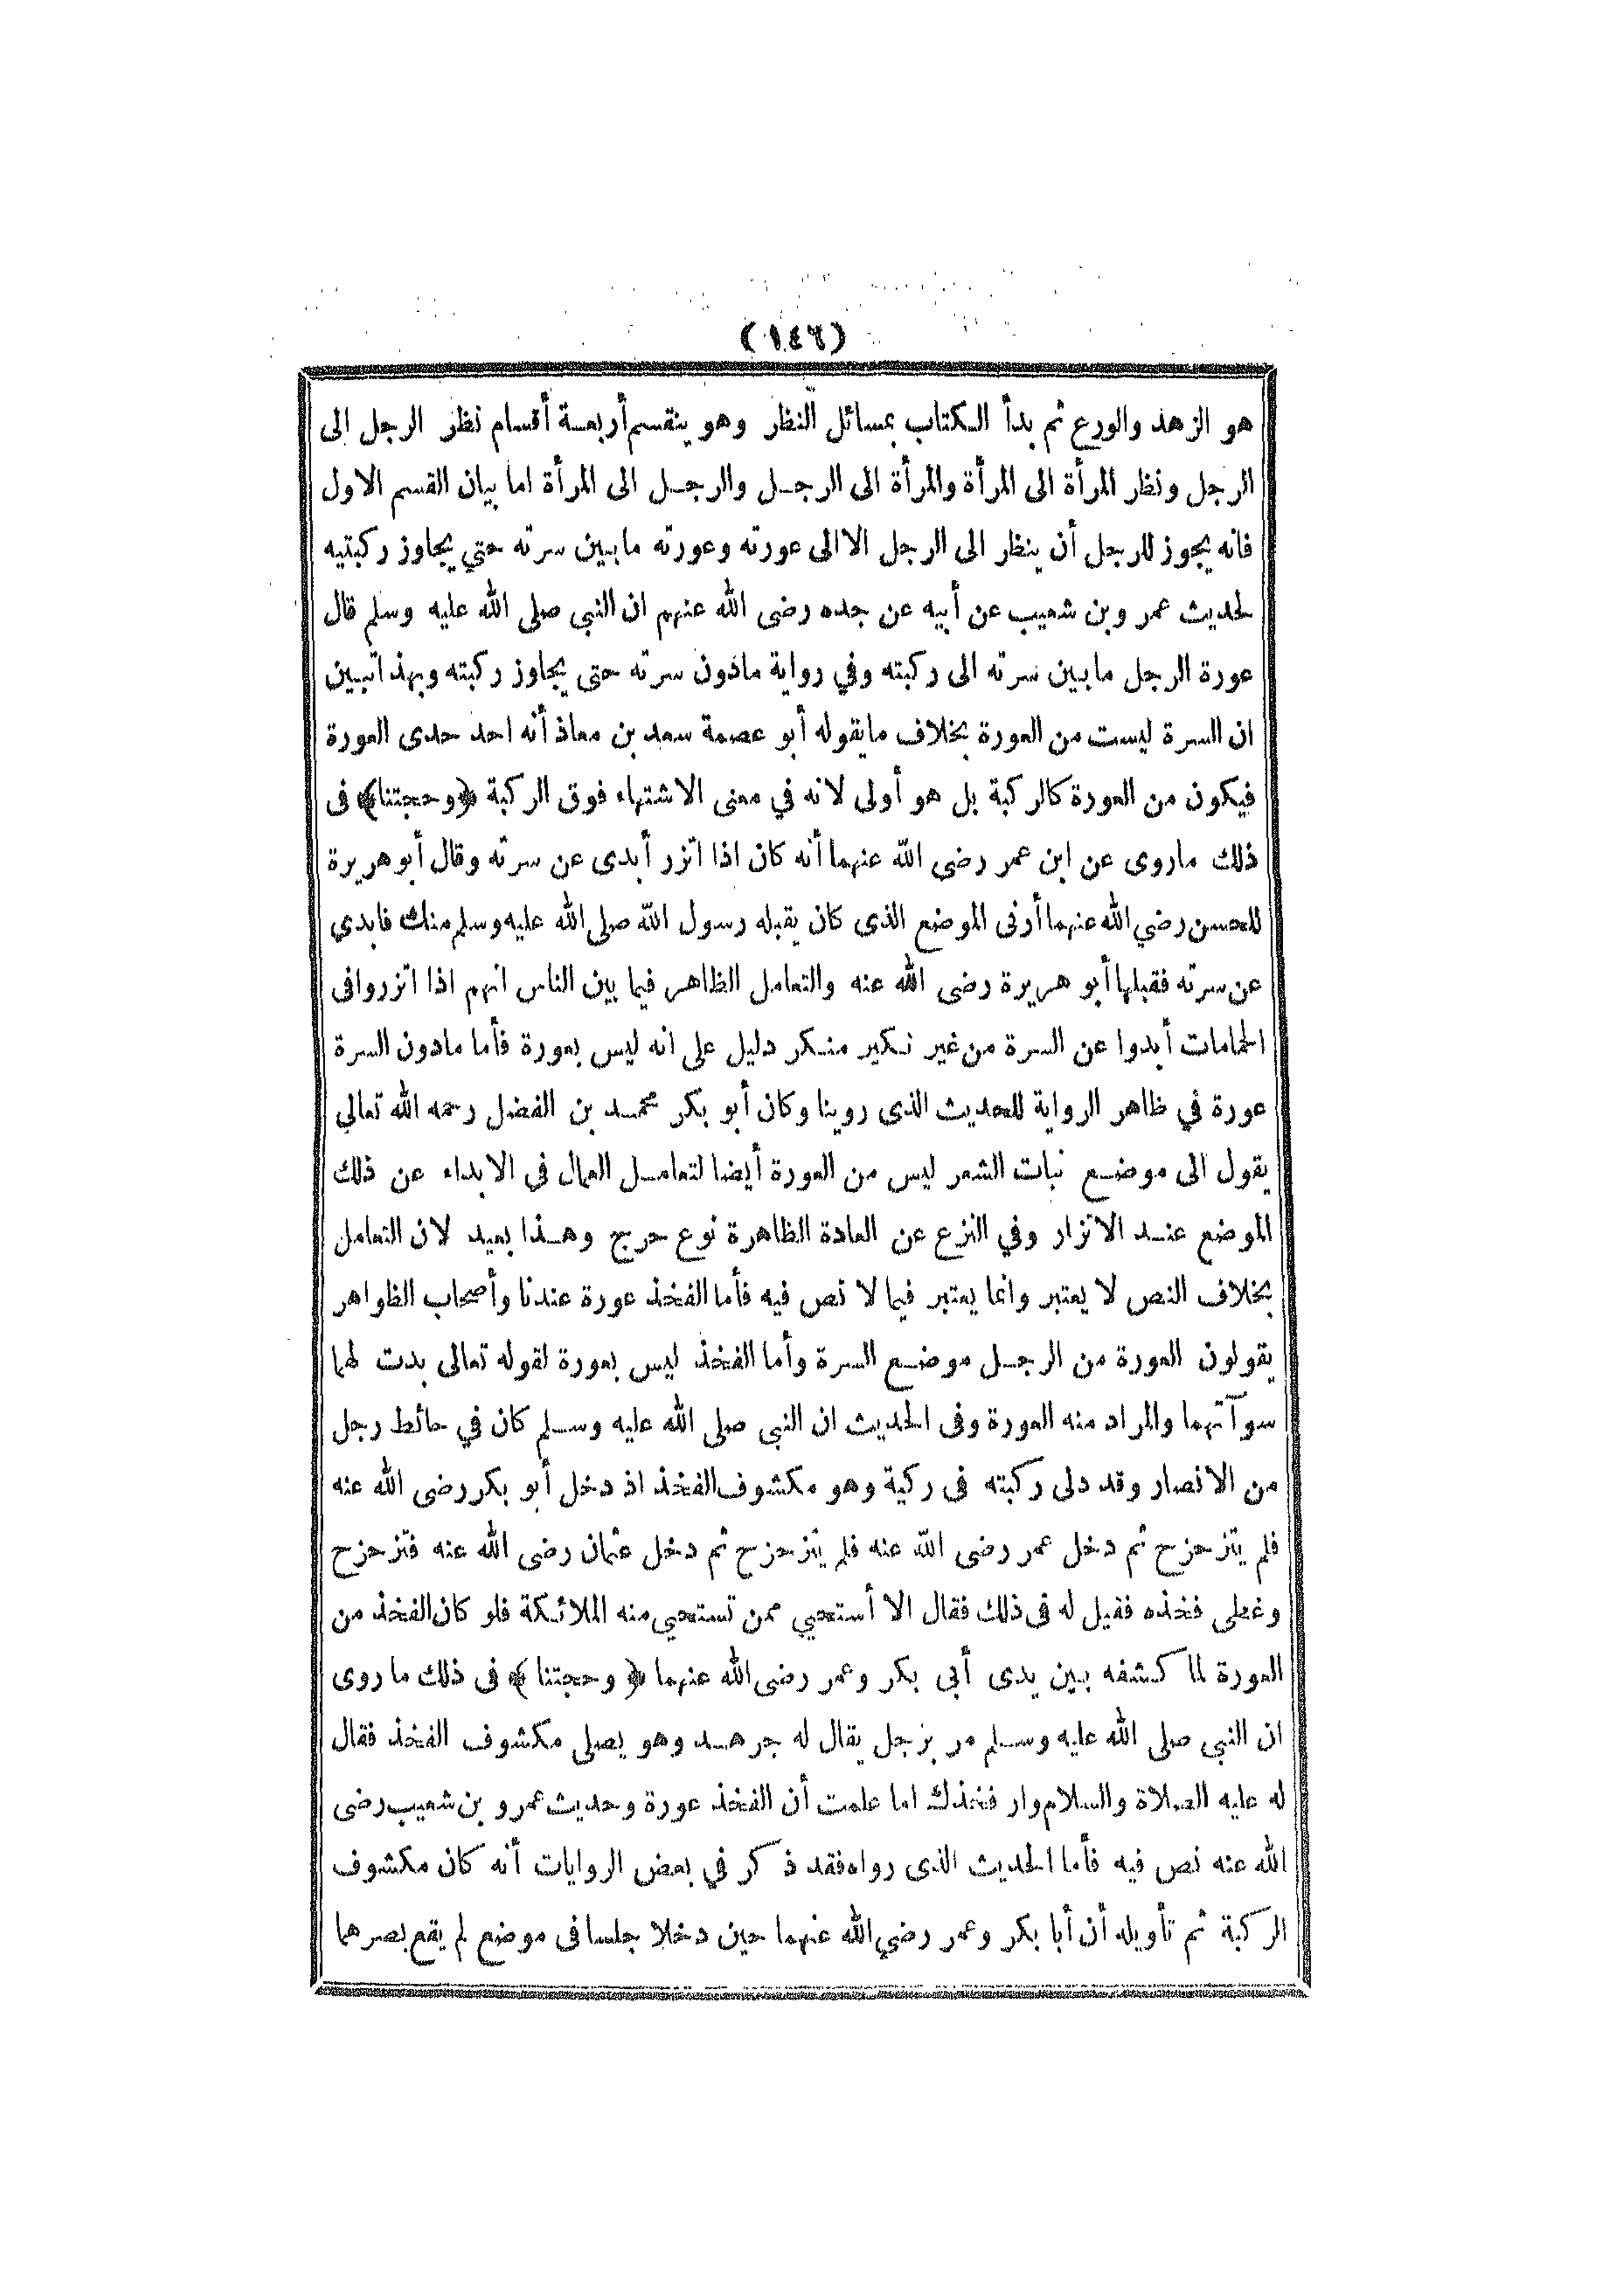 (١٤٦)
هو الزهد والورع ثم بدأ الكتاب بمسائل النظر وهو ينقسم أربعة أقسام نظر الرجل الى
الرجل ونظر المرأة الى المرأة والمرأة الى الرجل والرجل الى المرأة اما بيان القسم الاول
فانه يجوز للرجل أن ينظر الى الرجل الا الى عورته وعورته مابين سرته حتي يجاوز ركبتيه
لحديث عمرو بن شعيب عن أبيه عن جده رضى الله عنهم ان النبي صلى الله عليه وسلم قال
عورة الرجل مابين سرته الى ركبته وفي رواية مادون سرته حتى يجاوز ركبته وبهذا تبين
ان السرة ليست من العورة بخلاف مايقوله أبو عصمة سعد بن معاذ أنه احد حدى العورة
فيكون من العورة كالركبة بل هو أولى لانه في معنى الاشتهاء فوق الركبة ﴿وحجتنا﴾ فى
ذلك ماروى عن ابن عمر رضي الله عنهما أنه كان اذا اتزر أبدى عن سرته وقال أبو هريرة
للحسن رضي الله عنهما أرنى الموضع الذى كان يقبله رسول الله صلى الله عليه وسلم منك فابدي
عن سرته فقبلها أبو هريرة رضى الله عنه والتعامل الظاهر فيما بين الناس انهم اذا اتزروا فى
الحمامات أبدوا عن السرة من غير نكير منكر دليل على انه ليس بعورة فأما مادون السرة
عورة في ظاهر الرواية للحديث الذى روينا وكان أبو بكر محمد بن الفضل رحمه الله تعالي
يقول الى موضع نبات الشعر ليس من العورة أيضا لتعامل العمال فى الابداء عن ذلك
الموضع عند الاتزار وفي النزع عن العادة الظاهرة نوع حرج وهذا بعيد لان التعامل
بخلاف النص لا يعتبر وانما يعتبر فيما لا نص فيه فأما الفخذ عورة عندنا وأصحاب الظواهر
يقولون العورة من الرجل موضع السرة وأما الفخذ ليس بعورة لقوله تعالى بدت لهما
سوآتهما والمراد منه العورة وفى الحديث ان النبى صلى الله عليه وسلم كان في حائط رجل
من الانصار وقد دلى ركبته فى ركية وهو مكشوف الفخذ اذ دخل أبو بكر رضى الله عنه
فلم يتزحزح ثم دخل عمر رضى الله عنه فلم يتزحزح ثم دخل عثمان رضى الله عنه فتزحزح
وغطى فخذه فقيل له فى ذلك فقال الا أستحيي ممن تستحيي منه الملائكة فلو كان الفخذ من
العورة لما كشفه بين يدى أبى بكر وعمر رضى الله عنهما ﴿وحجتنا﴾ فى ذلك ما روى
ان النبي صلى الله عليه وسلم مر برجل يقال له جرهد وهو يصلى مكشوف الفخذ فقال
له عليه الصلاة والسلام وار فخذك اما علمت أن الفخذ عورة وحديث عمرو بن شعيب رضى
الله عنه نص فيه فأما الحديث الذى رواه فقد ذكر في بعض الروايات أنه كان مكشوف
الركبة ثم تأويله أن أبا بكر وعمر رضي الله عنهما حين دخلا جلسا فى موضع لم يقع بصرهما